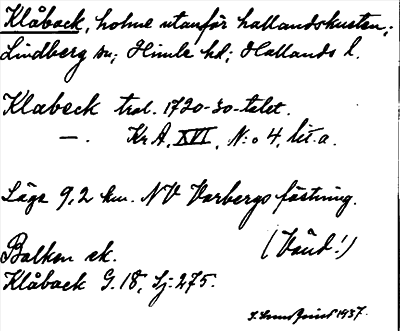 Klåback, holme utanför hallandskusten;
Lindberg sn; Himle hd; Hallands l.
Klabeck trol. 1720-30-talet.
— . Kr A, XVI, N:o 4, lit. a.
Läge 9,2 km. NV Varbergs fästning.
Balken ek. (Vänd!)
Klåback G. 18, Sj: 275.
1937.